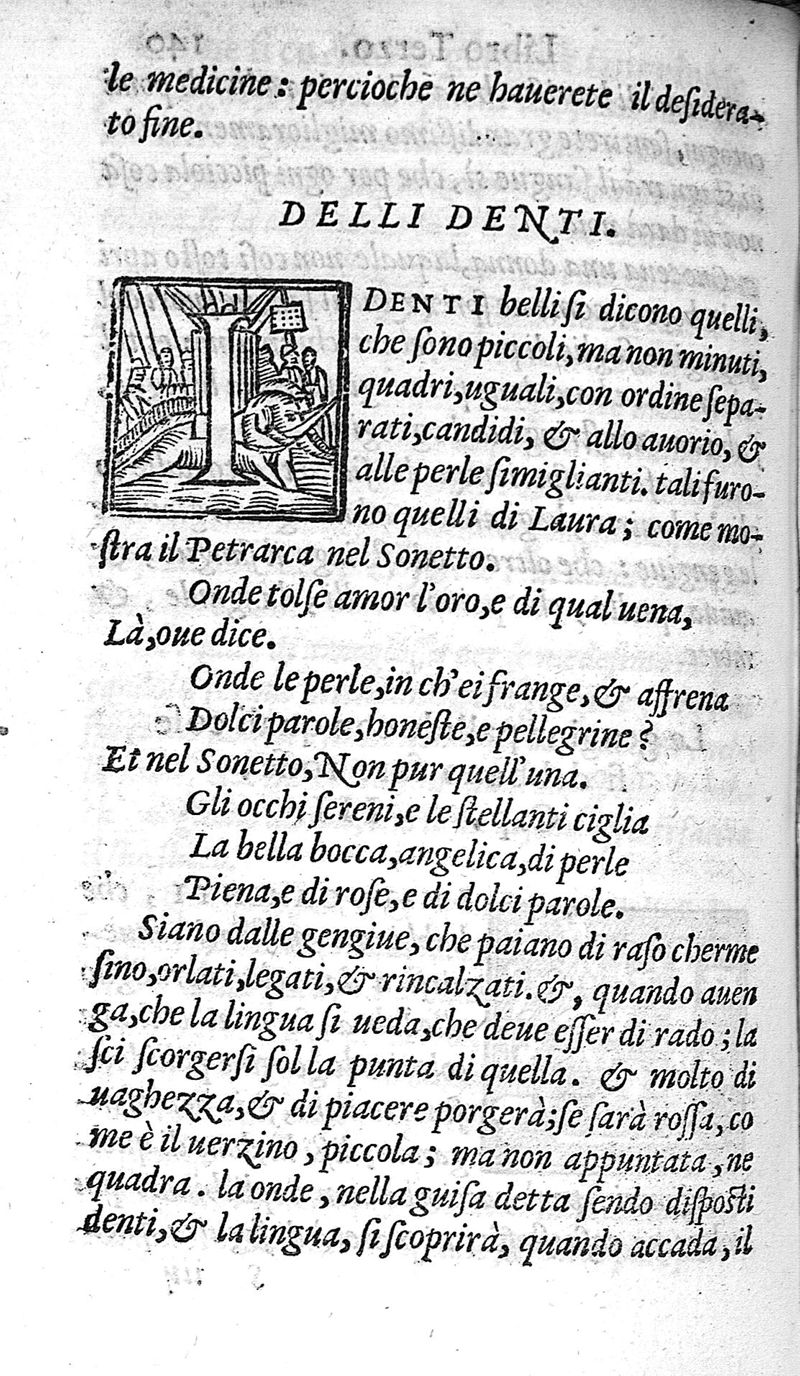 le medicine: percioche ne hauerete il deſidera-
to fine.
DELLI DENTI.
I DENTI belli ſi dicono quelli,
che ſono piccoli, ma non minuti,
quadri, uguali, con ordine ſepa-
rati, candidi, & allo auorio, &
alle perle ſimiglianti. tali furo-
no quelli di Laura; come mo-
ſtra il Petrarca nel Sonetto.
Onde tolſe amor l'oro, e di qual uena,
Là, oue dice.
Onde le perle, in ch'ei frange, & affrena
Dolci parole, honeſte, e pellegrine?
Et nel Sonetto, Non pur quell'una.
Gli occhi ſereni, e le ſtellanti ciglia
La bella bocca, angelica, di perle
Piena, e di roſe, e di dolci parole.
Siano dalle gengiue, che paiano di raſo cherme
ſino, orlati, legati, & rincalzati. &, quando auen
ga, che la lingua ſi ueda, che deue eſſer di rado; la
ſci ſcorgerſi ſol la punta di quella. & molto di
uaghezza, & di piacere porgerà; ſe ſarà roſſa, co
me è il uerzino, piccola; ma non appuntata, ne
quadra. la onde, nella guiſa detta ſendo diſpoſti
denti, & la lingua, ſi ſcoprirà, quando accada, il